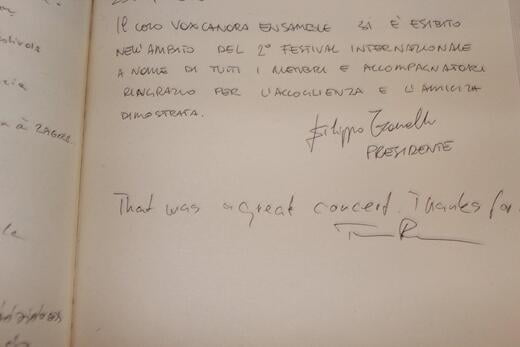 IL CORO VOXCANORA ENSAMBLE SI È ESIBITO
NELL'AMBITO DEL 2° FESTIVAL INTERNAZIONALE
A NOME DI TUTTI I MEMBRI E ACCOMPAGNATORI
RINGRAZIO PER L'ACCOGLIENZA E L'AMICIZIA
DIMOSTRATA.
Filippo
PRESIDENTE
That was a great concert. Thanks for